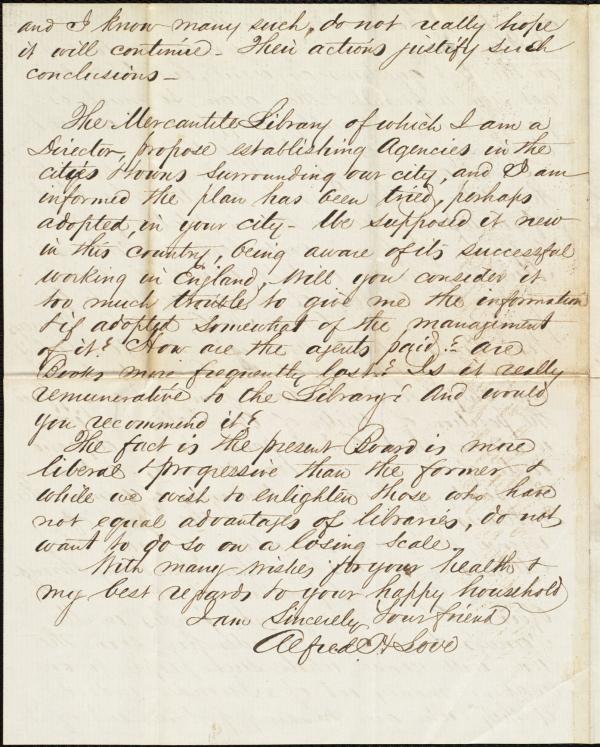 and I know many such, do not really hope
it will continue - Their actions justify such
conclusions -
The Mercantile Library of which I am a
Director, propose establishing Agencies in the
cities & towns surrounding our city, and I am
informed the plan has been tried, perhaps
adopted, in your city - We supposed it new
in this country, being aware of its successful
working in England, Will you consider it
too much trouble to give me the information
& if adopted somewhat of the management
of it? How are the agents paid? - are
Books more frequently lost? Is it really
remunerative to the Library? And would
you recommend it?
The fact is the present Board is more
liberal & progressive than the former &
while we wish to enlighten those who have
not equal advantages of libraries, do not
want to do so on a losing scale.
With many wishes for your health &
my best regards to your happy household
I am Sincerely Your friend
Alfred H Love